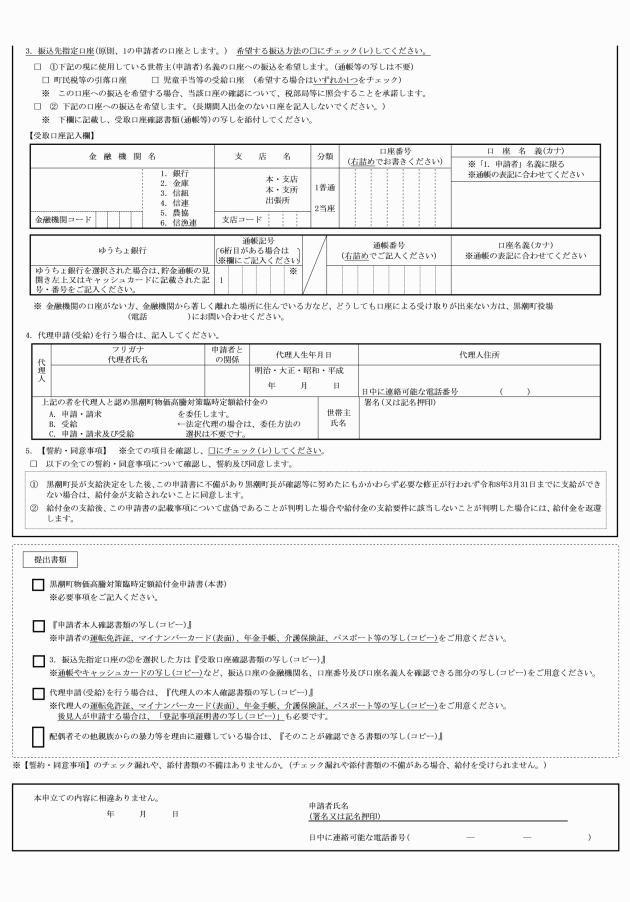 3. 振込先指定口座(原則、1の申請者の口座とします。) 希望する振込方法の□にチェック(レ)してください。
□ ①下記の現に使用している世帯主(申請者)名義の口座への振込を希望します。(通帳等の写しは不要)
□ 町民税等の引落口座 □ 児童手当等の受給口座 (希望する場合はいずれか1つをチェック)
※ この口座への振込を希望する場合、当該口座の確認について、税部局等に照会することを承諾します。
□ ② 下記の口座への振込を希望します。(長期間入出金のない口座を記入しないでください。)
※ 下欄に記載し、受取口座確認書類(通帳等)の写しを添付してください。
【受取口座記入欄】
金 融 機 関 名 支 店 名 分類 口座番号 口 座 名 義(カナ)
(右詰めでお書きください)
※「1. 申請者」名義に限る
※通帳の表記に合わせてください
1. 銀行
2. 金庫
3. 信組
4. 信連
5. 農協
6. 信漁連
本・支店
本・支所
出張所
1普通
2当座
金融機関コード 支店コード
ゆうちょ銀行 通帳記号 通帳番号 口座名義(カナ)
(6桁目がある場合は
※欄にご記入ください)
(右詰めでご記入ください)
※通帳の表記に合わせてください
ゆうちょ銀行を選択された場合は、貯金通帳の見
開き左上又はキャッシュカードに記載された記
号・番号をご記入ください。
1 ※
※ 金融機関の口座がない方、金融機関から著しく離れた場所に住んでいる方など、どうしても口座による受け取りが出来ない方は、黒潮町役場
(電話 )にお問い合わせください。
4. 代理申請(受給)を行う場合は、記入してください。
代理人
フリガナ
代理者氏名
申請者と
の関係
代理人生年月日 代理人住所
明治・大正・昭和・平成
年 月 日
日中に連絡可能な電話番号 ( )
上記の者を代理人と認め黒潮町物価高騰対策臨時定額給付金の
A. 申請・請求 を委任します。
B. 受給 ←法定代理の場合は、委任方法の
C. 申請・請求及び受給 選択は不要です。
世帯主
氏名
署名(又は記名押印)
5. 【誓約・同意事項】 ※全ての項目を確認し、□にチェック(レ)してください。
□ 以下の全ての誓約・同意事項について確認し、誓約及び同意します。
① 黒潮町長が支給決定をした後、この申請書に不備があり黒潮町長が確認等に努めたにもかかわらず必要な修正が行われず令和8年3月31日までに支給ができ
ない場合は、給付金が支給されないことに同意します。
② 給付金の支給後、この申請書の記載事項について虚偽であることが判明した場合や給付金の支給要件に該当しないことが判明した場合には、給付金を返還
します。
提出書類
黒潮町物価高騰対策臨時定額給付金申請書(本書)
※必要事項をご記入ください。
『申請者本人確認書類の写し(コピー)』
※申請者の運転免許証、マイナンバーカード(表面)、年金手帳、介護保険証、パスポート等の写し(コピー)をご用意ください。
3. 振込先指定口座の②を選択した方は『受取口座確認書類の写し(コピー)』
※通帳やキャッシュカードの写し(コピー)など、振込口座の金融機関名、口座番号及び口座名義人を確認できる部分の写し(コピー)をご用意ください。
代理申請(受給)を行う場合は、『代理人の本人確認書類の写し(コピー)』
※代理人の運転免許証、マイナンバーカード(表面)、年金手帳、介護保険証、パスポート等の写し(コピー)をご用意ください。
後見人が申請する場合は、「登記事項証明書の写し(コピー)」も必要です。
配偶者その他親族からの暴力等を理由に避難している場合は、『そのことが確認できる書類の写し(コピー)』
※【誓約・同意事項】のチェック漏れや、添付書類の不備はありませんか。(チェック漏れや添付書類の不備がある場合、給付を受けられません。)
本申立ての内容に相違ありません。
年 月 日
申請者氏名
(署名又は記名押印)
日中に連絡可能な電話番号( ― ― )